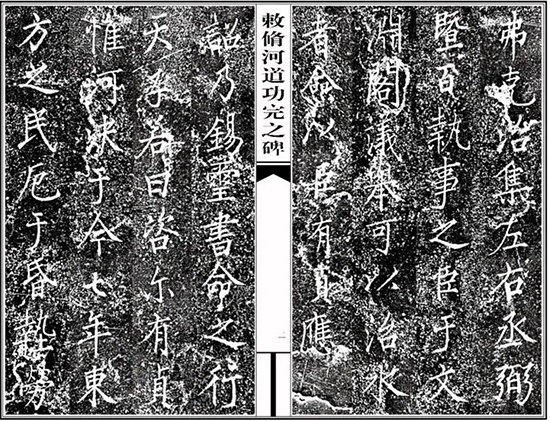 弗克治集左右丞弼
暨百執事之臣于文
淵閣議舉可以治水
者僉以臣有貞應
敕脩河道功完之碑
詔乃錫璽書命之行
天子若曰咨尔有貞
惟河決于今七年東
方之民厄于昏墊勞